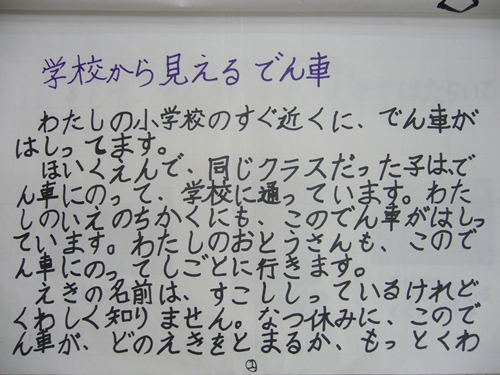 学校から見える でん車
わたしの小学校のすぐ近くに、でん車が
はしってます。
ほいくえんで、同じクラスだった子は、で
ん車にのって、学校に通っています。わた
しのいえのちかくにも、このでん車がはしっ
ています。わたしのおとうさんも、こので
ん車にのってしごとに行きます。
えきの名前は、すこししっているけれど
くわしく知りません。なつ休みに、こので
ん車が、どのえきをとまるか、もっとくわ
①